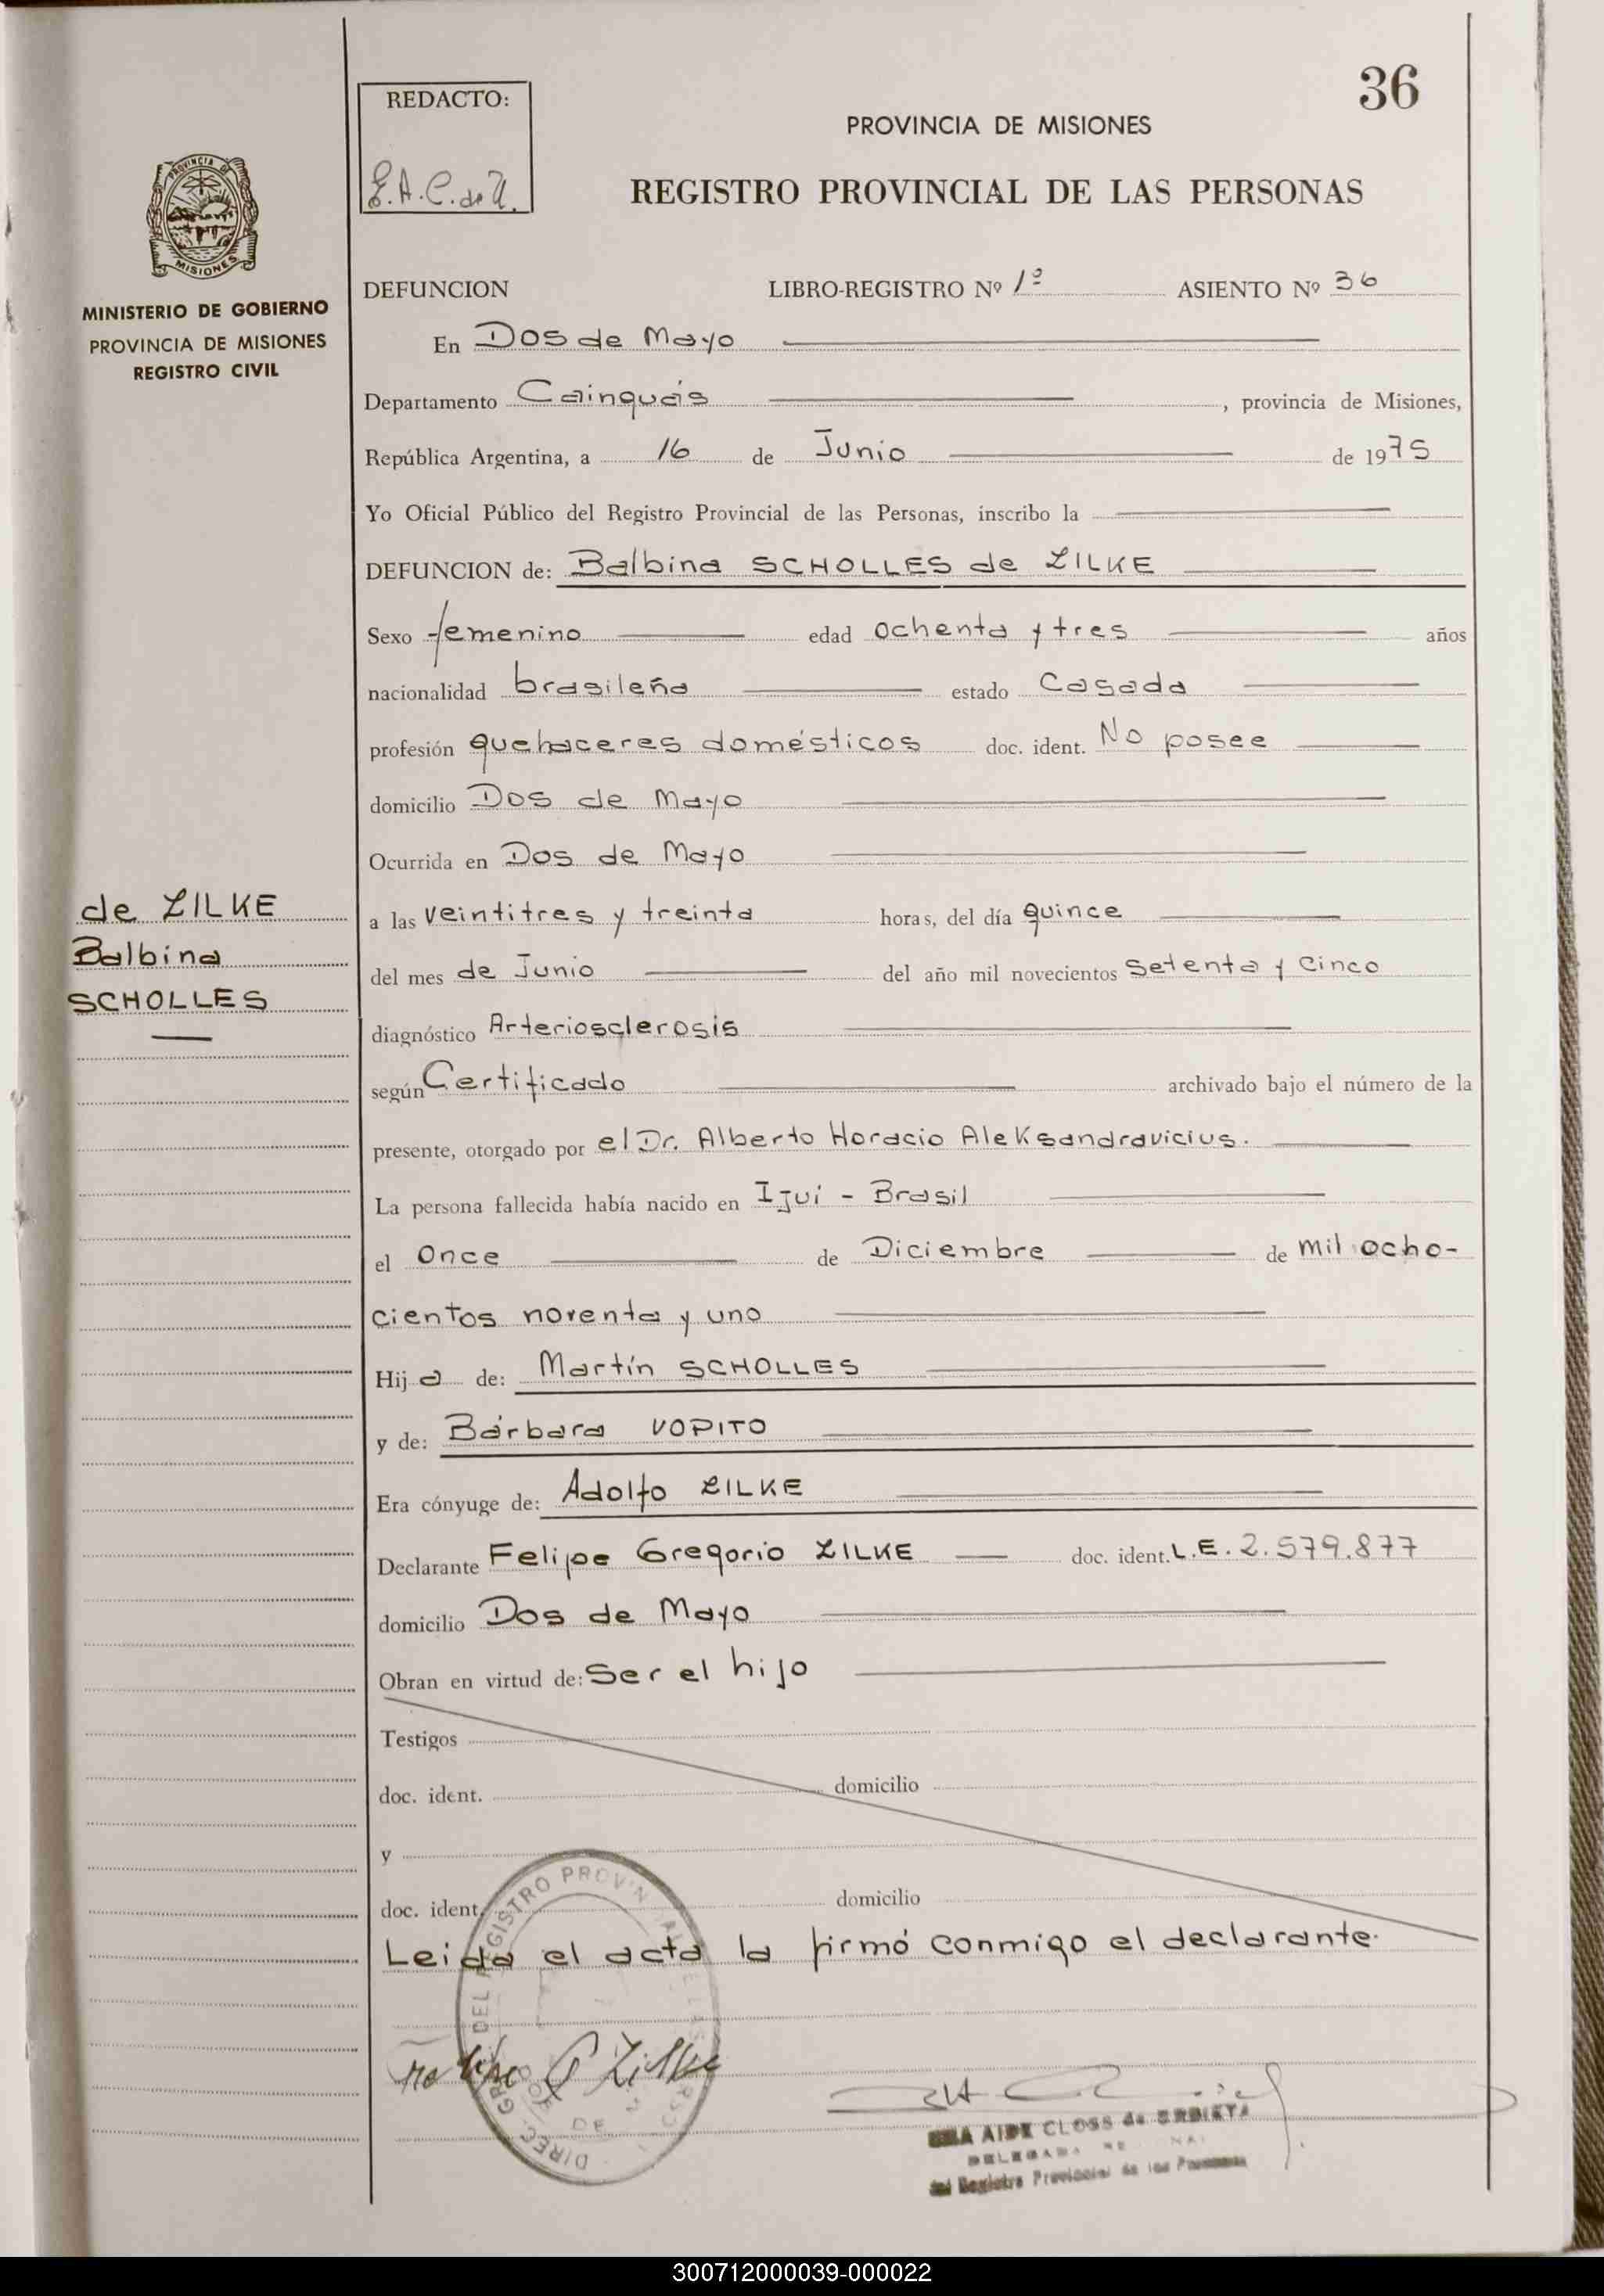 36
REDACTO:
E.A.C. de U.
PROVINCIA DE MISIONES
REGISTRO PROVINCIAL DE LAS PERSONAS
PROVINCIA DE
MISIONES
MINISTERIO DE GOBIERNO
PROVINCIA DE MISIONES
REGISTRO CIVIL
DEFUNCION LIBRO-REGISTRO Nº 1º ASIENTO Nº 36
En Dos de Mayo
Departamento Cainguás, provincia de Misiones,
República Argentina, a 16 de Junio de 1975
Yo Oficial Público del Registro Provincial de las Personas, inscribo la
DEFUNCION de: Balbina SCHOLLES de ZILKE
Sexo femenino edad ochenta y tres años
nacionalidad brasileña estado Casada
profesión quehaceres domésticos doc. ident. No posee
domicilio Dos de Mayo
Ocurrida en Dos de Mayo
de ZILKE
Balbina
SCHOLLES
a las veintitres y treinta horas, del día quince
del mes de Junio del año mil novecientos Setenta y Cinco
diagnóstico Arteriosclerosis
según Certificado archivado bajo el número de la
presente, otorgado por el Dr. Alberto Horacio Aleksandravicius.
La persona fallecida había nacido en Ijuí - Brasil
el Once de Diciembre de mil ocho-
cientos noventa y uno
Hij a de: Martín SCHOLLES
y de: Bárbara VOPITO
Era cónyuge de: Adolfo ZILKE
Declarante Felipe Gregorio ZILKE doc. ident. L.E. 2.579.877
domicilio Dos de Mayo
Obran en virtud de: Ser el hijo
Testigos
doc. ident. domicilio
y
doc. ident. domicilio
Leida el acta la firmó conmigo el declarante.
Felipe G Zilke
AIDE CLOSS de URBIETA
DELEGADA
del Registro Provincial de las Personas
300712000039-000022